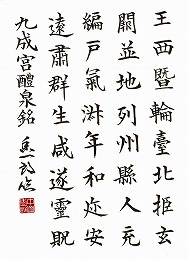 王西曁輪臺北拒玄
闕並地列州縣人充
編戸氣淋年和迩安
遠肅群生咸遂靈貺
九成宮醴泉銘
臨